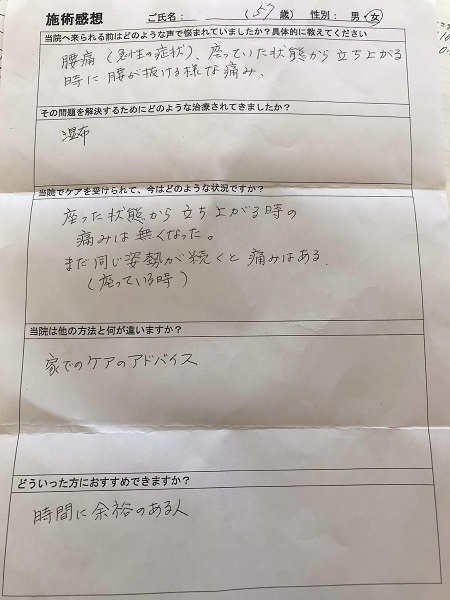 施術感想 ご氏名： (57歳) 性別： 男・女
当院へ来られる前はどのような声で悩まれていましたか？具体的に教えてください
腰痛（急性の症状）、座っていた状態から立ち上がる
時に腰が抜ける様な痛み、
その問題を解決するためにどのような治療されてきましたか？
湿布
当院でケアを受けられて、今はどのような状況ですか？
座った状態から立ち上がる時の
痛みは無くなった。
まだ同じ姿勢が続くと痛みはある、
（座っている時）
当院は他の方法と何が違いますか？
家でのケアのアドバイス
どういった方におすすめできますか？
時間に余裕のある人